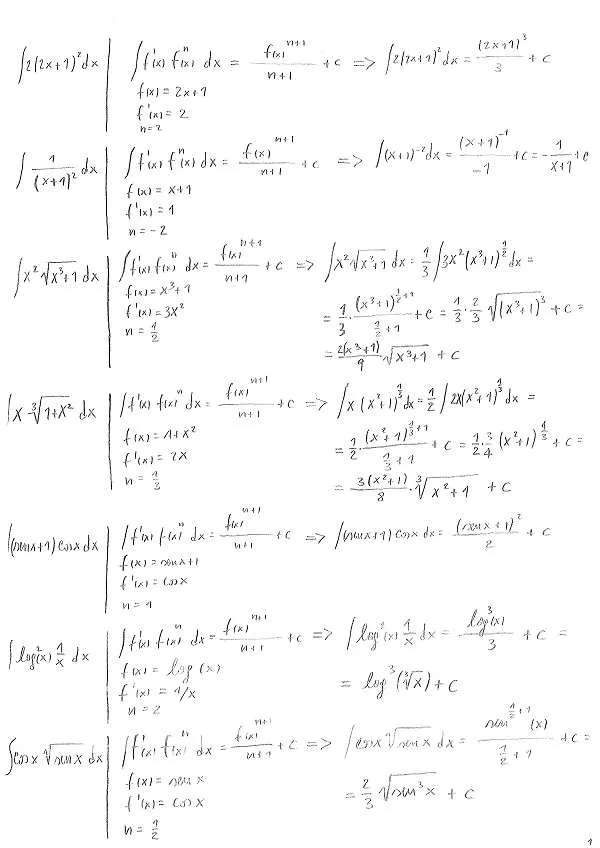 ∫2(2x+1)²dx | ∫f'(x) fⁿ(x) dx = f(x)ⁿ⁺¹/n+1 + c => ∫2(2x+1)²dx = (2x+1)³/3 + c
f(x) = 2x+1
f'(x) = 2
n=2
∫ 1/(x+1)² dx | ∫f'(x) fⁿ(x) dx = f(x)ⁿ⁺¹/n+1 + c => ∫(x+1)⁻²dx = (x+1)⁻¹/-1 + c = -1/x+1 + c
f(x) = x+1
f'(x) = 1
n = -2
∫x²√(x³+1) dx | ∫f'(x) f(x)ⁿ dx = f(x)ⁿ⁺¹/n+1 + c => ∫x²√(x³+1) dx = 1/3 ∫3x²(x³+1)^(1/2) dx =
f(x) = x³+1
f'(x) = 3x²
= 1/3 · (x³+1)^(1/2+1)/(1/2+1) + c = 1/3 · 2/3 √(x³+1)³ + c =
n = 1/2
= 2(x³+1)/9 · √(x³+1) + c
∫x·∛(1+x²) dx | ∫f'(x) f(x)ⁿ dx = f(x)ⁿ⁺¹/n+1 + c => ∫x (x²+1)^(1/3) dx = 1/2 ∫2x(x²+1)^(1/3) dx =
f(x) = 1+x²
= 1/2 · (x²+1)^(1/3+1)/(1/3+1) + c = 1/2 · 3/4 (x²+1)^(4/3) + c =
f'(x) = 2x
n = 1/3
= 3(x²+1)/8 · ∛(x²+1) + c
∫(senx+1) cosx dx | ∫f'(x) f(x)ⁿ dx = f(x)ⁿ⁺¹/n+1 + c => ∫(senx+1) cosx dx = (senx+1)²/2 + c
f(x) = senx+1
f'(x) = cosx
n = 1
∫log²(x) 1/x dx | ∫f'(x) f(x)ⁿ dx = f(x)ⁿ⁺¹/n+1 + c => ∫log²(x) 1/x dx = log³(x)/3 + c =
f(x) = log (x)
= log³(∛x) + c
f'(x) = 1/x
n = 2
∫cosx √senx dx | ∫f'(x) f(x)ⁿ dx = f(x)ⁿ⁺¹/n+1 + c => ∫cosx √senx dx = sen^(1/2+1)(x)/(1/2+1) + c =
f(x) = sen x
f'(x) = cosx
= 2/3 √sen³x + c
n = 1/2
1